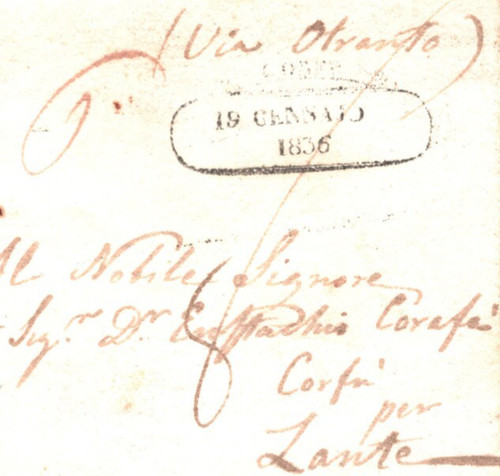 (Via Otranto)
CORFU
19 GENNAIO
1836
Al Nobile Signore
Sig.r D.r Eustachio Corafà
Corfù
per
Zante